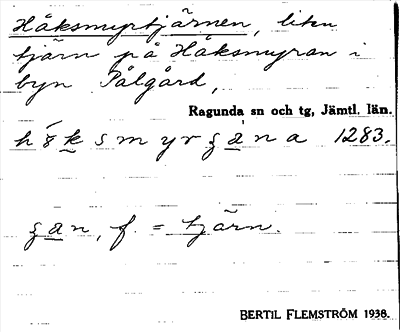 Håksmyrtjärnen, liten
tjärn på Håksmyran i
byn Pålgård,
Ragunda sn och tg, Jämtl. län.
1283.
f. = tjärn.
BERTIL FLEMSTRÖM 1938.